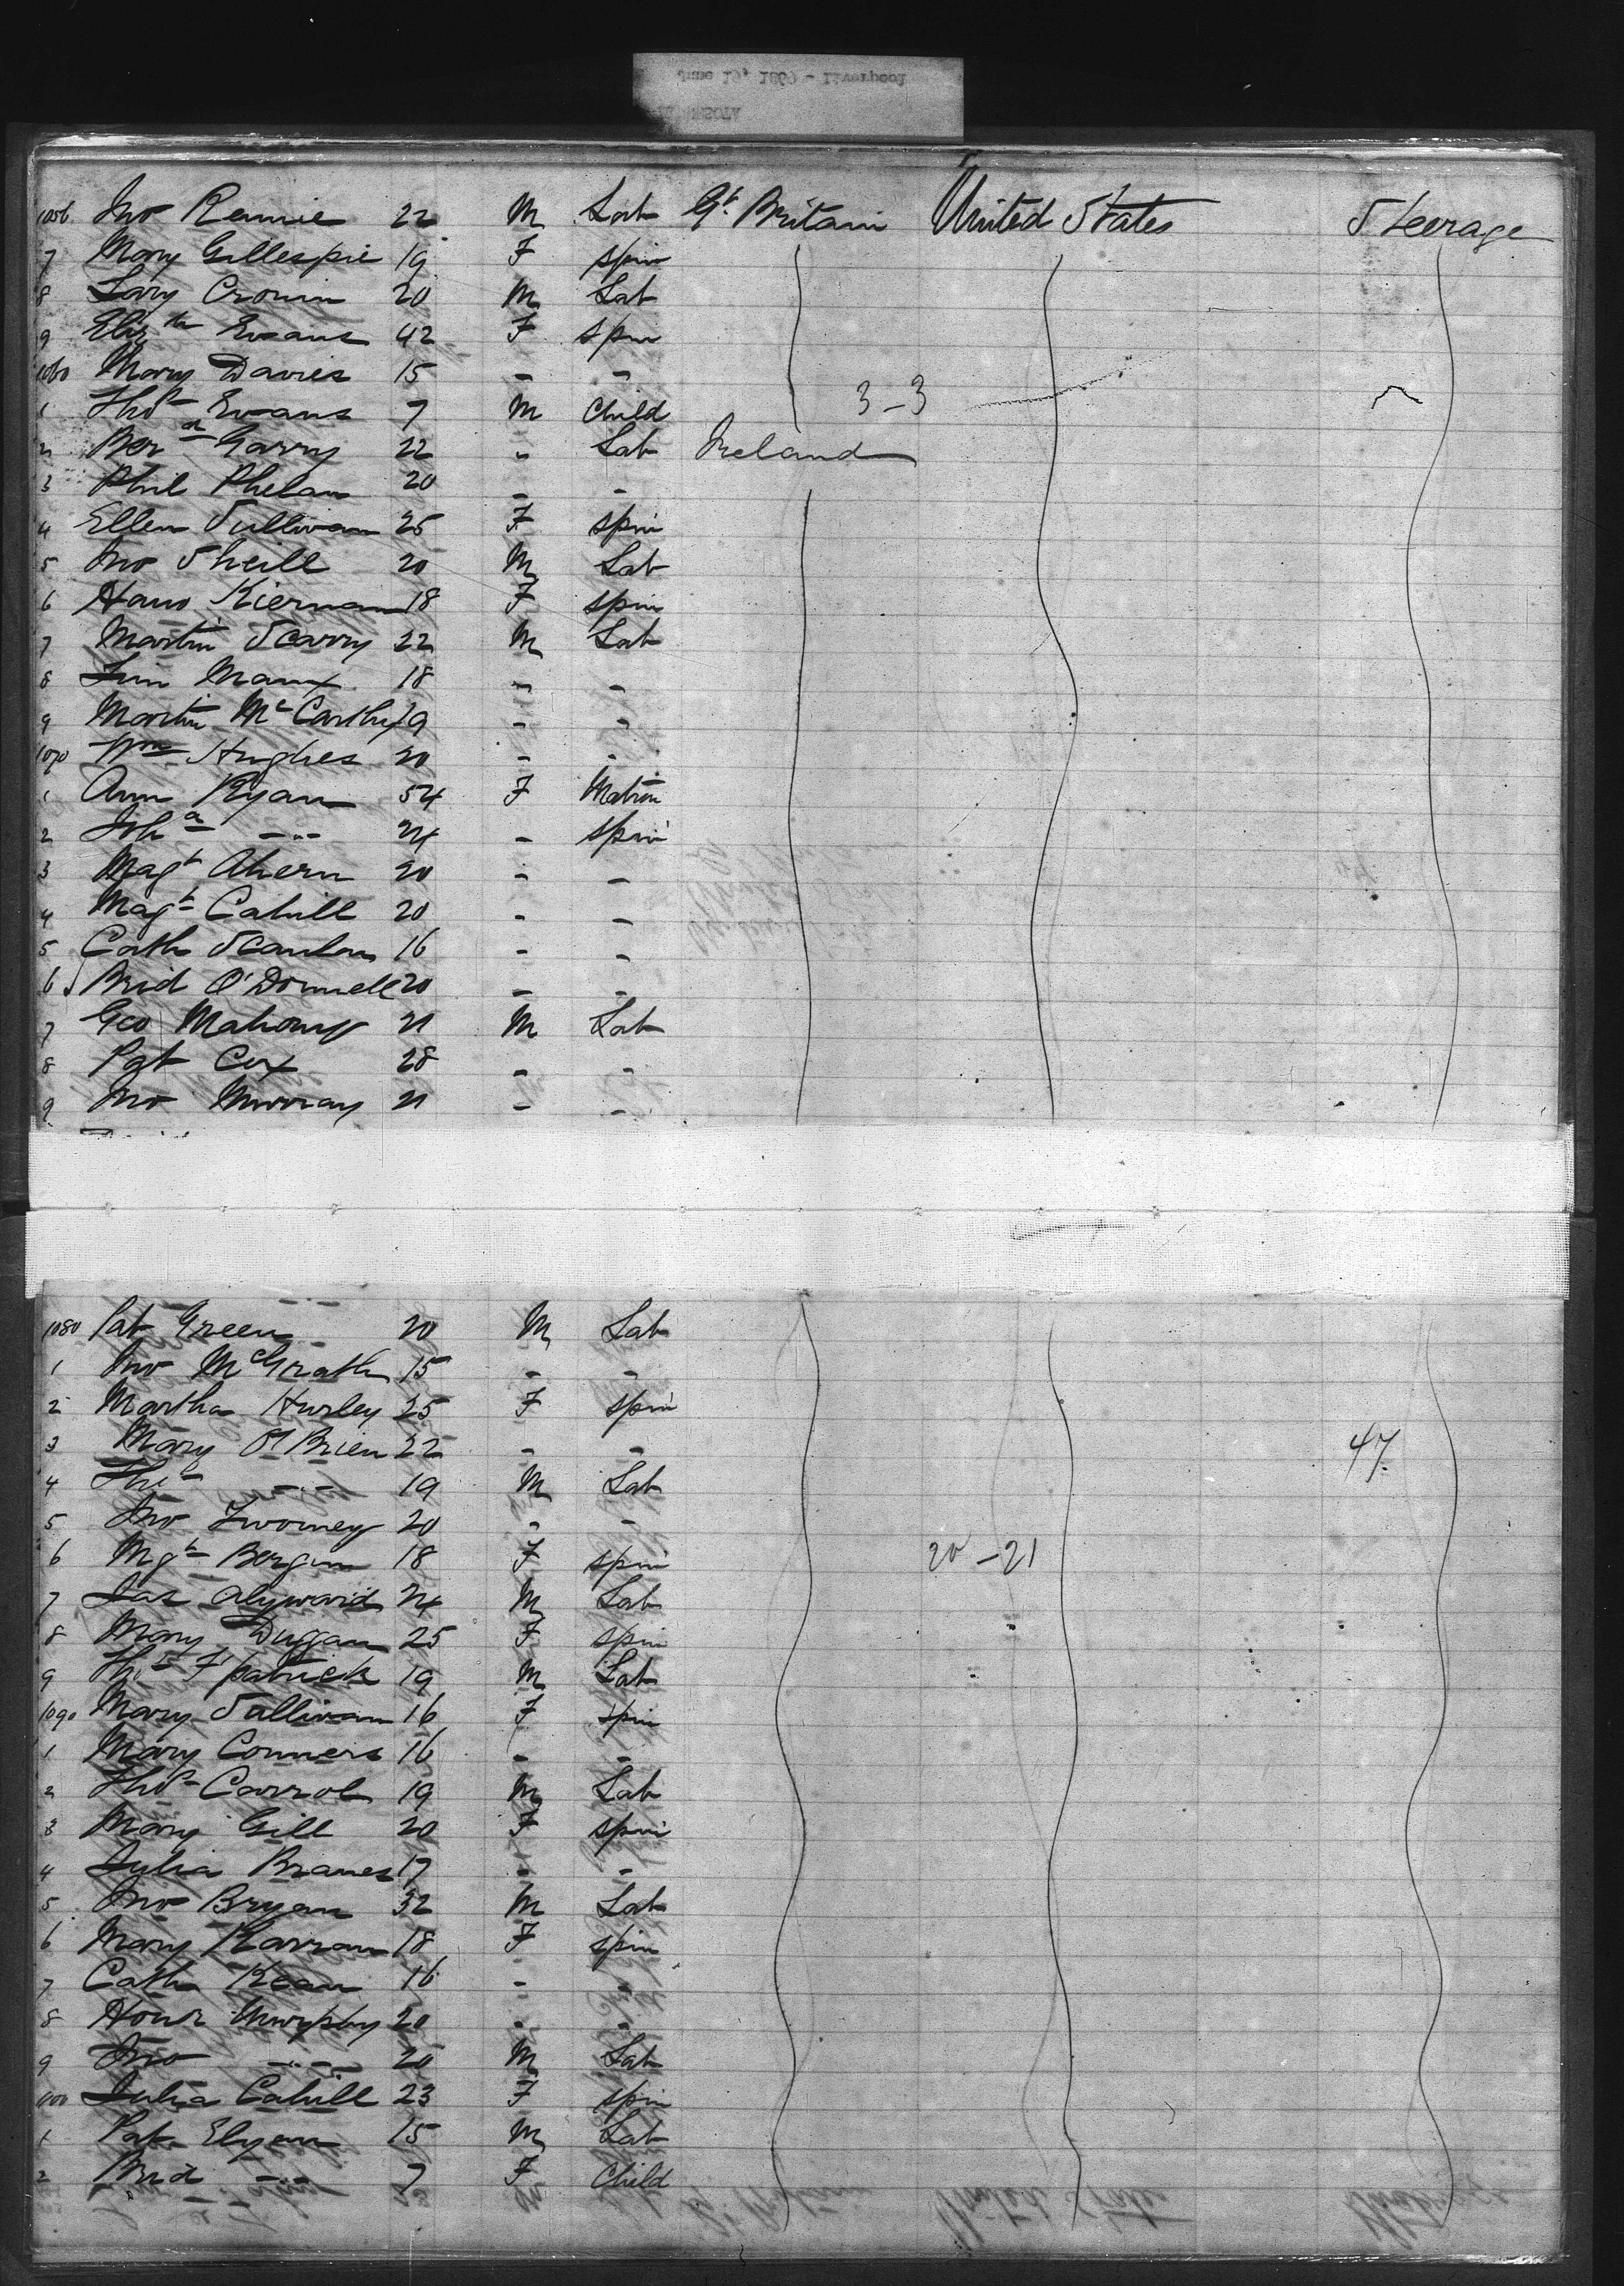 June 19, 1869 - Liverpool
1056 Jno Rennie 22 M Lab Gt. Britain United States Steerage
7 Mary Gillespie 19 F spin
8 Lary Cronin 20 M Lab
9 Elizth Evans 42 F spin
1060 Mary Davies 15 - -
1 Thos Evans 7 M Child 3-3
2 Berd Garry 22 " Lab Ireland
3 Phil Phelan 20 - -
4 Ellen Sullivan 25 F spin
5 Jno Sheill 20 M Lab
6 Hano Kiernan 18 F spin
7 Martin Scarry 22 M Lab
8 Jim 18 - -
9 Martin McCarthy 19 - -
1070 Wm Hughes 20 - -
1 Ann Ryan 54 F Matron
2 Joha -"- 24 - spin
3 Magt Ahern 20 - -
4 Magt Cahill 20 - -
5 Cath Scanlan 16 - -
6 Brid O'Donnell 20 - -
7 Geo Mahony 21 M Lab
8 Pat Cox 28 - -
9 Jno Murray 21 - -
1080 Pat Green 20 M Lab
1 Jno McGrath 15 - -
2 Martha Hurley 25 F spin
3 Mary O'Brien 22 - - 47
4 Thos -"- 19 M Lab
5 Jno Twomey 20 - -
6 Mgt Bergin 18 F spin 20-21
7 Jas Alyward 24 M Lab
8 Mary Duggan 25 F spin
9 Thos F'patrick 19 M Lab
1090 Mary Sullivan 16 F spin
1 Mary Conners 16 - -
2 Thos Carrol 19 M Lab
3 Mary Gill 20 F spin
4 Julia 17 - -
5 Jno Bryan 32 M Lab
6 Mary 18 F spin
7 Cath Kean 16 - -
8 Honr Murphy 20 - -
9 Jno -"- 20 M Lab
1100 Julia Cahill 23 F spin
1 Pat Elyan 15 M Lab
2 Brid -"- 7 F Child